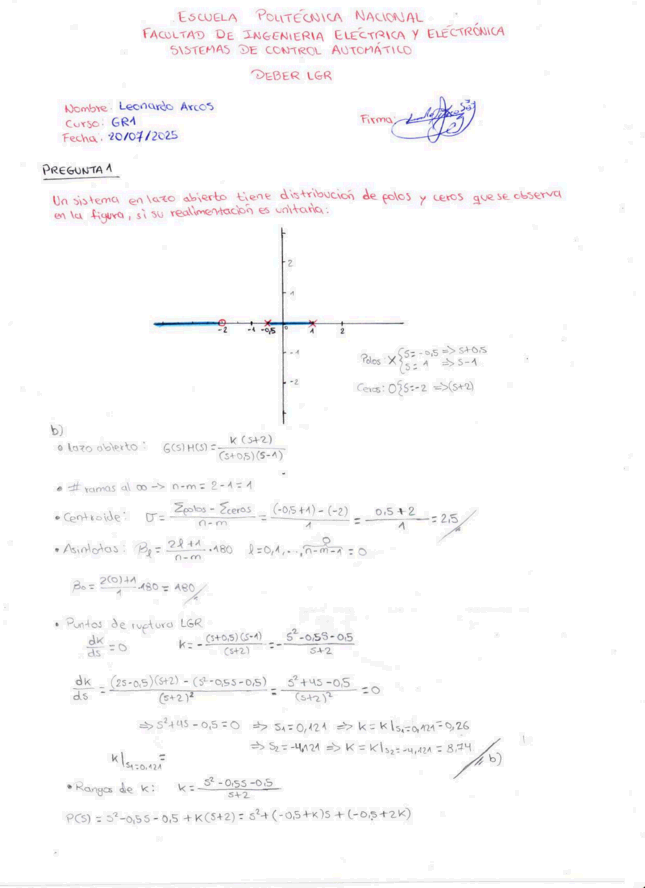 ESCUELA POLITÉCNICA NACIONAL
FACULTAD DE INGENIERIA ELÉCTRICA Y ELÉCTRÓNICA
SISTEMAS DE CONTROL AUTOMÁTICO
DEBER LGR
Nombre: Leonardo Arcos
Curso: GR1
Fecha: 20/07/2025
Firma:
PREGUNTA 1
Un sistema en lazo abierto tiene distribución de polos y ceros que se observa
en la figura, si su realimentación es unitaria:
2
1
-2 -1 -0,5 0 1 2
-1
-2
Polos: X { S=-0,5 => S+0,5
S=1 => S-1
Ceros: O { S=-2 => (S+2)
b)
• lazo abierto: G(s)H(s) = K(S+2) / (S+0,5)(S-1)
• # ramas al ∞ -> n-m = 2-1 = 1
• Centroide: σ = (Σpolos - Σceros) / (n-m) = ((-0,5+1) - (-2)) / 1 = (0,5+2) / 1 = 2,5
• Asíntotas: βℓ = (2ℓ+1) / (n-m) · 180 ℓ=0,1,..., n-m-1 = 0
0
β0 = (2(0)+1) / 1 · 180 = 180
• Puntos de ruptura LGR
dk/ds = 0 k = - (S+0,5)(S-1) / (S+2) = - S²-0,5S-0,5 / S+2
dk/ds = ((2S-0,5)(S+2) - (S²-0,5S-0,5)) / (S+2)² = (S²+4S-0,5) / (S+2)² = 0
=> S²+4S-0,5=0 => S1=0,121 => K=K|S1=0,121=0,26
=> S2=-4,121 => K=K|S2=-4,121=8,74
b)
K|S1=0,121 =
• Rangos de K: K = S²-0,5S-0,5 / S+2
P(S) = S²-0,5S-0,5+K(S+2) = S²+(-0,5+K)S+(-0,5+2K)